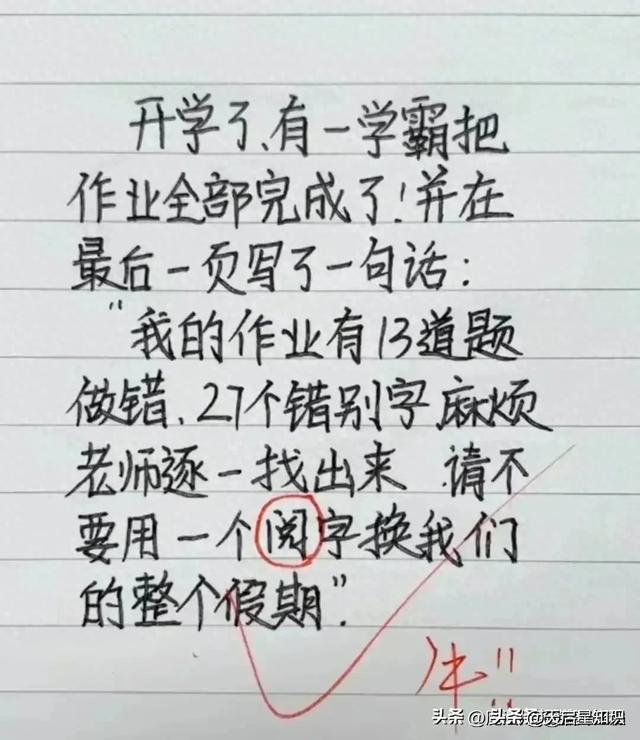 开学了、有一学霸把
作业全部完成了!并在
最后一页写了一句话:
"我的作业有13道题
做错、27个错别字麻烦
老师逐一找出来 请不
要用一个阅字换我们
的整个假期".
牛!!
头条 @天启星知识